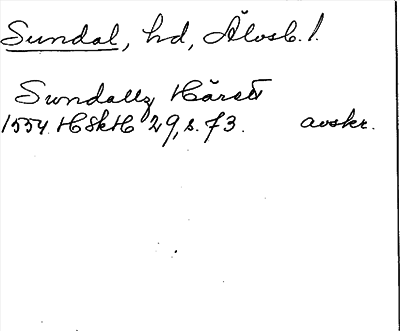 Sundal, hd, Älvsb. l.
Sundallz Häratt
1554 HSkH 29, s. 73. avskr.